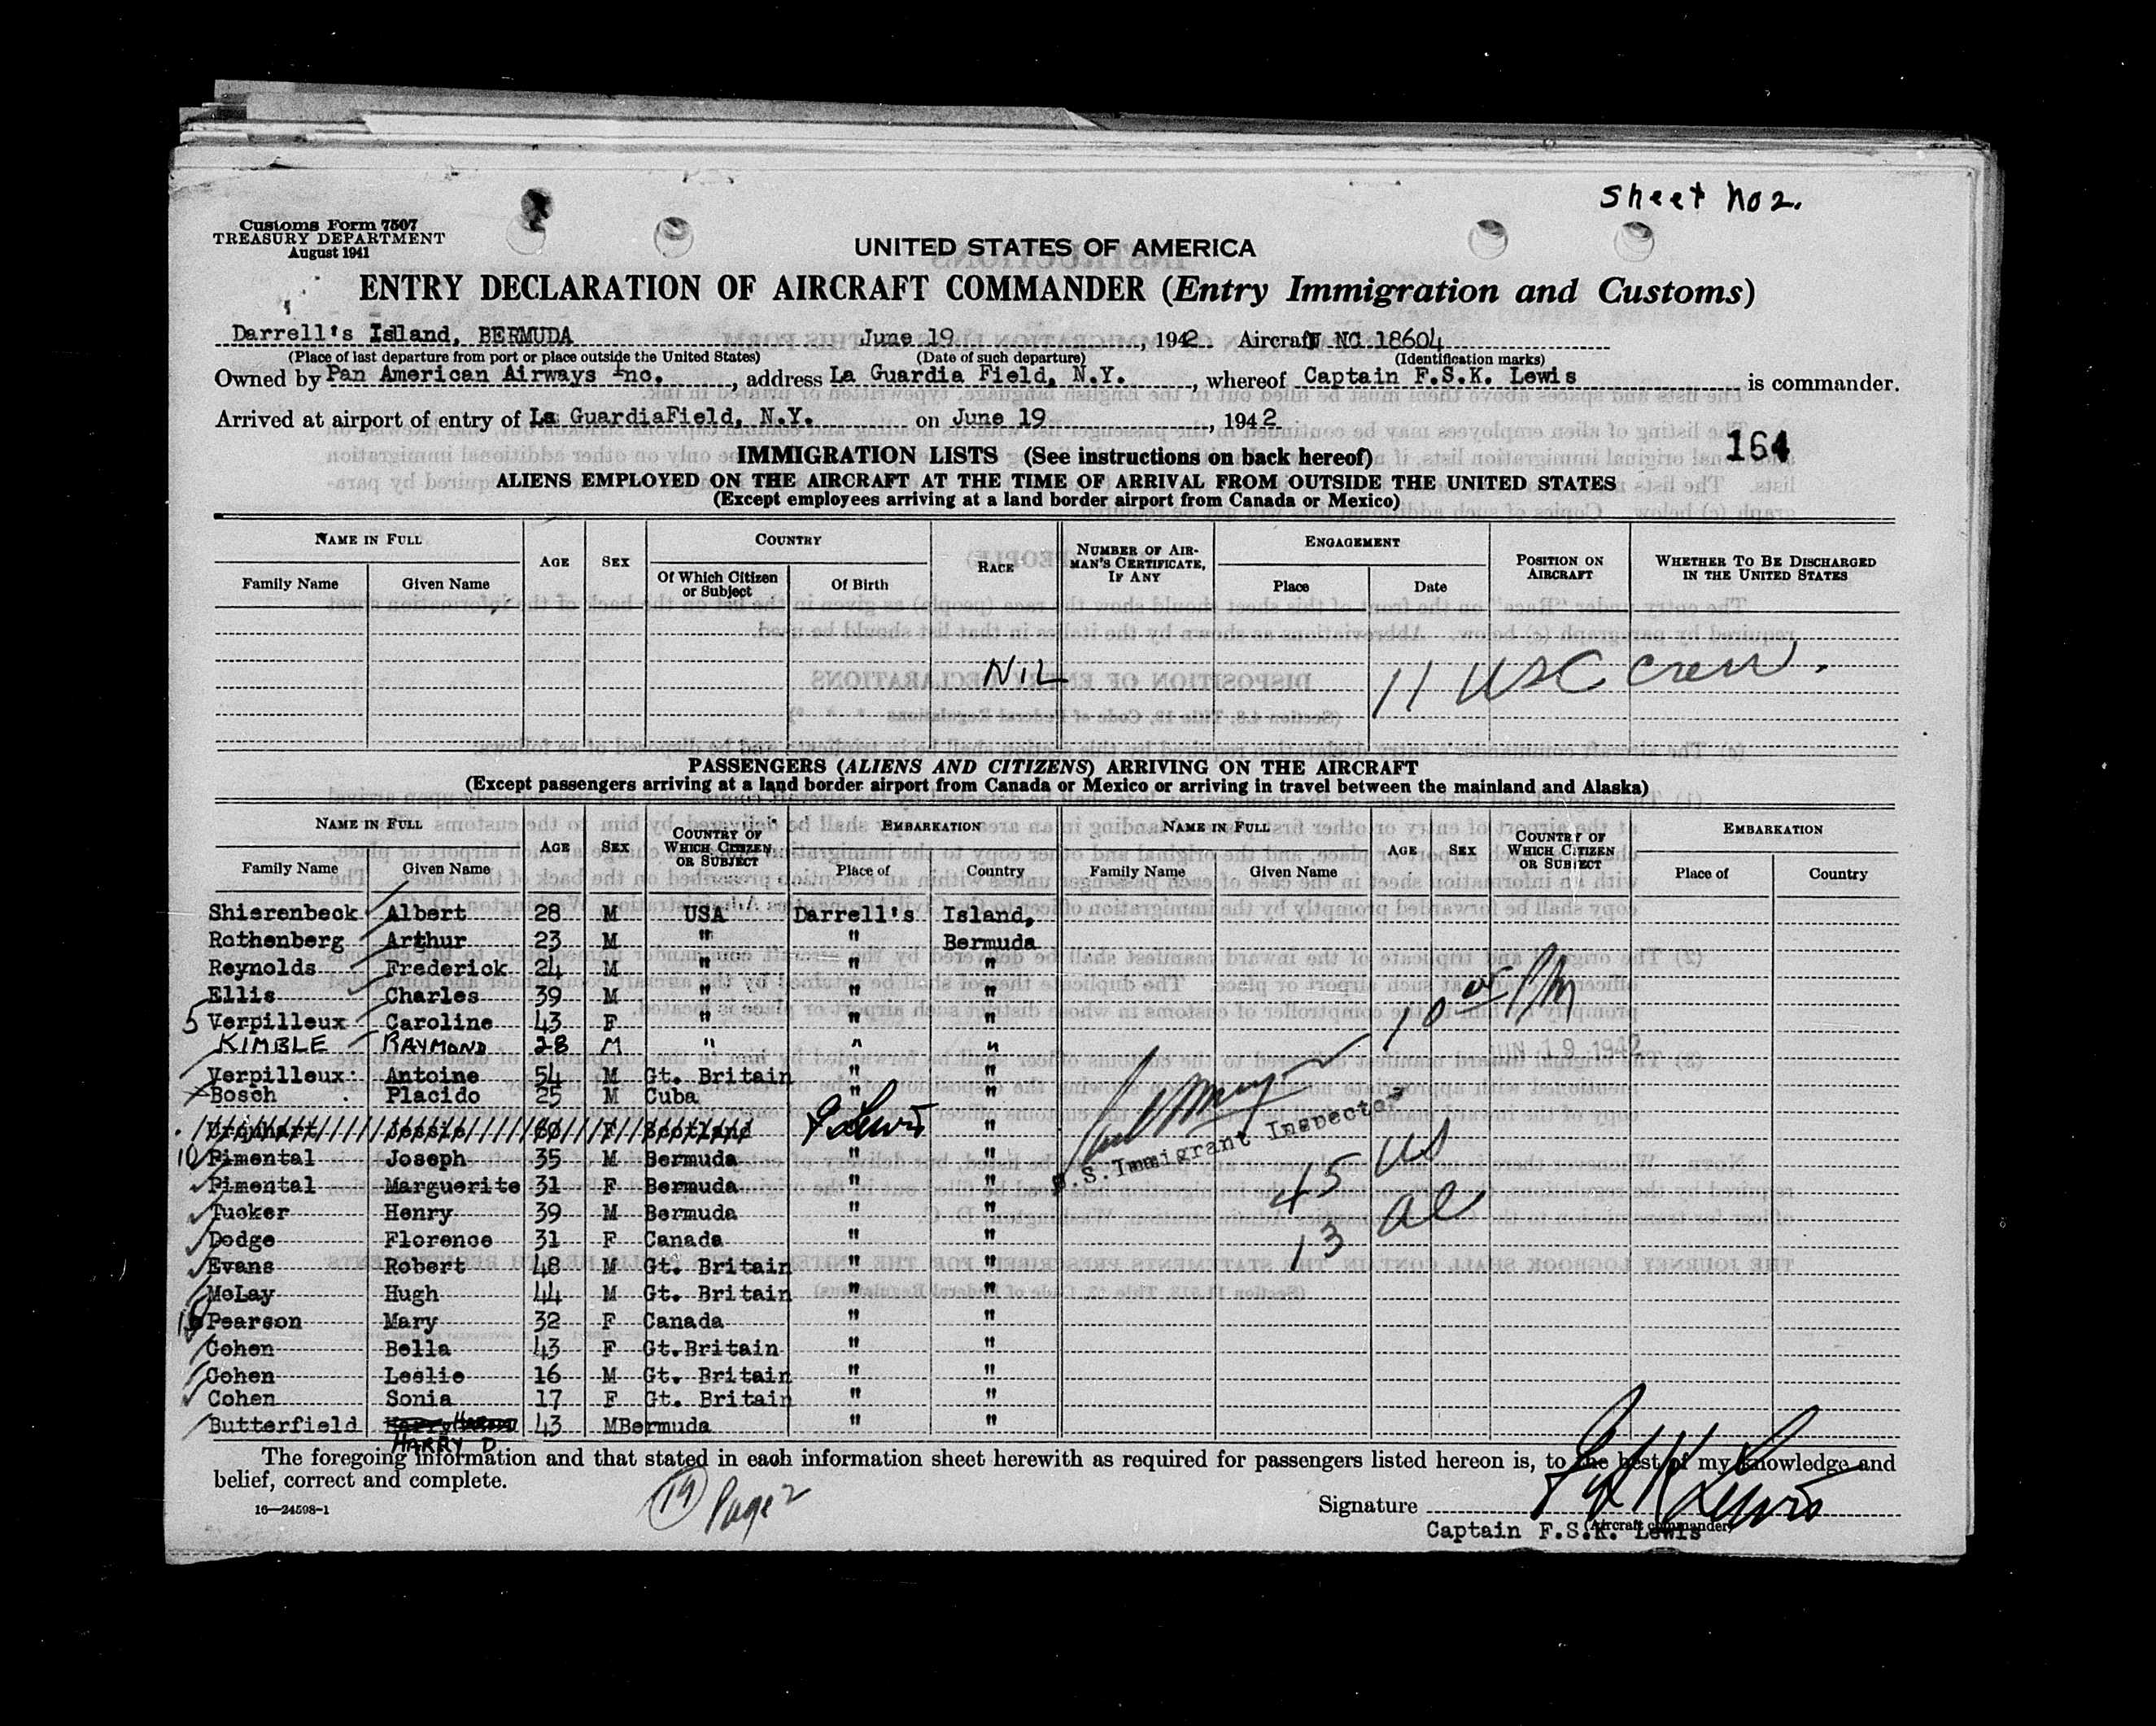 Sheet No 2.
Customs Form 7507
TREASURY DEPARTMENT
August 1941
UNITED STATES OF AMERICA
ENTRY DECLARATION OF AIRCRAFT COMMANDER (Entry Immigration and Customs)
Darrell's Island, BERMUDA June 19, 1942 Aircraft NC 18604
(Place of last departure from port or place outside the United States) (Date of such departure) (Identification marks)
Owned by Pan American Airways Inc., address La Guardia Field, N.Y., whereof Captain F.S.K. Lewis is commander.
Arrived at airport of entry of La GuardiaField, N.Y. on June 19, 1942
164
IMMIGRATION LISTS (See instructions on back hereof)
ALIENS EMPLOYED ON THE AIRCRAFT AT THE TIME OF ARRIVAL FROM OUTSIDE THE UNITED STATES
(Except employees arriving at a land border airport from Canada or Mexico)
NAME IN FULL AGE SEX COUNTRY RACE NUMBER OF AIRMAN'S CERTIFICATE, IF ANY ENGAGEMENT POSITION ON AIRCRAFT WHETHER TO BE DISCHARGED IN THE UNITED STATES
Family Name Given Name Of Which Citizen or Subject Of Birth Place Date
NIL 11 USC crew.
PASSENGERS (ALIENS AND CITIZENS) ARRIVING ON THE AIRCRAFT
(Except passengers arriving at a land border airport from Canada or Mexico or arriving in travel between the mainland and Alaska)
NAME IN FULL AGE SEX COUNTRY OF WHICH CITIZEN OR SUBJECT EMBARKATION NAME IN FULL AGE SEX COUNTRY OF WHICH CITIZEN OR SUBJECT EMBARKATION
Family Name Given Name Place of Country Family Name Given Name Place of Country
Shierenbeck Albert 28 M USA Darrell's Island,
Rothenberg Arthur 23 M " " Bermuda
Reynolds Frederick 24 M " " "
Ellis Charles 39 M " " "
5 Verpilleux Caroline 43 F " " "
KIMBLE RAYMOND 28 M " " "
JUN 19 1942
Verpilleux Antoine 54 M Gt. Britain " "
Bosch Placido 25 M Cuba " "
Urquhart Jessie 60 F Scotland F Lewis "
U.S. Immigrant Inspector
10 Pimental Joseph 35 M Bermuda " "
45 US
Pimental Marguerite 31 F Bermuda " "
Tucker Henry 39 M Bermuda " "
13 al
Dodge Florence 31 F Canada " "
Evans Robert 48 M Gt. Britain " "
McLay Hugh 44 M Gt. Britain " "
15 Pearson Mary 32 F Canada " "
Cohen Bella 43 F Gt.Britain " "
Cohen Leslie 16 M Gt. Britain " "
Cohen Sonia 17 F Gt. Britain " "
Butterfield 43 M Bermuda " "
HARRY D
The foregoing information and that stated in each information sheet herewith as required for passengers listed hereon is, to the best of my knowledge and
belief, correct and complete.
16—24598-1
19 Page 2
Signature F.S.K. Lewis
(Aircraft commander)
Captain F.S.K. Lewis